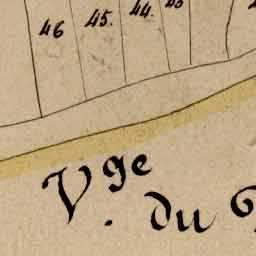 46 45. 44.
Vge
. du